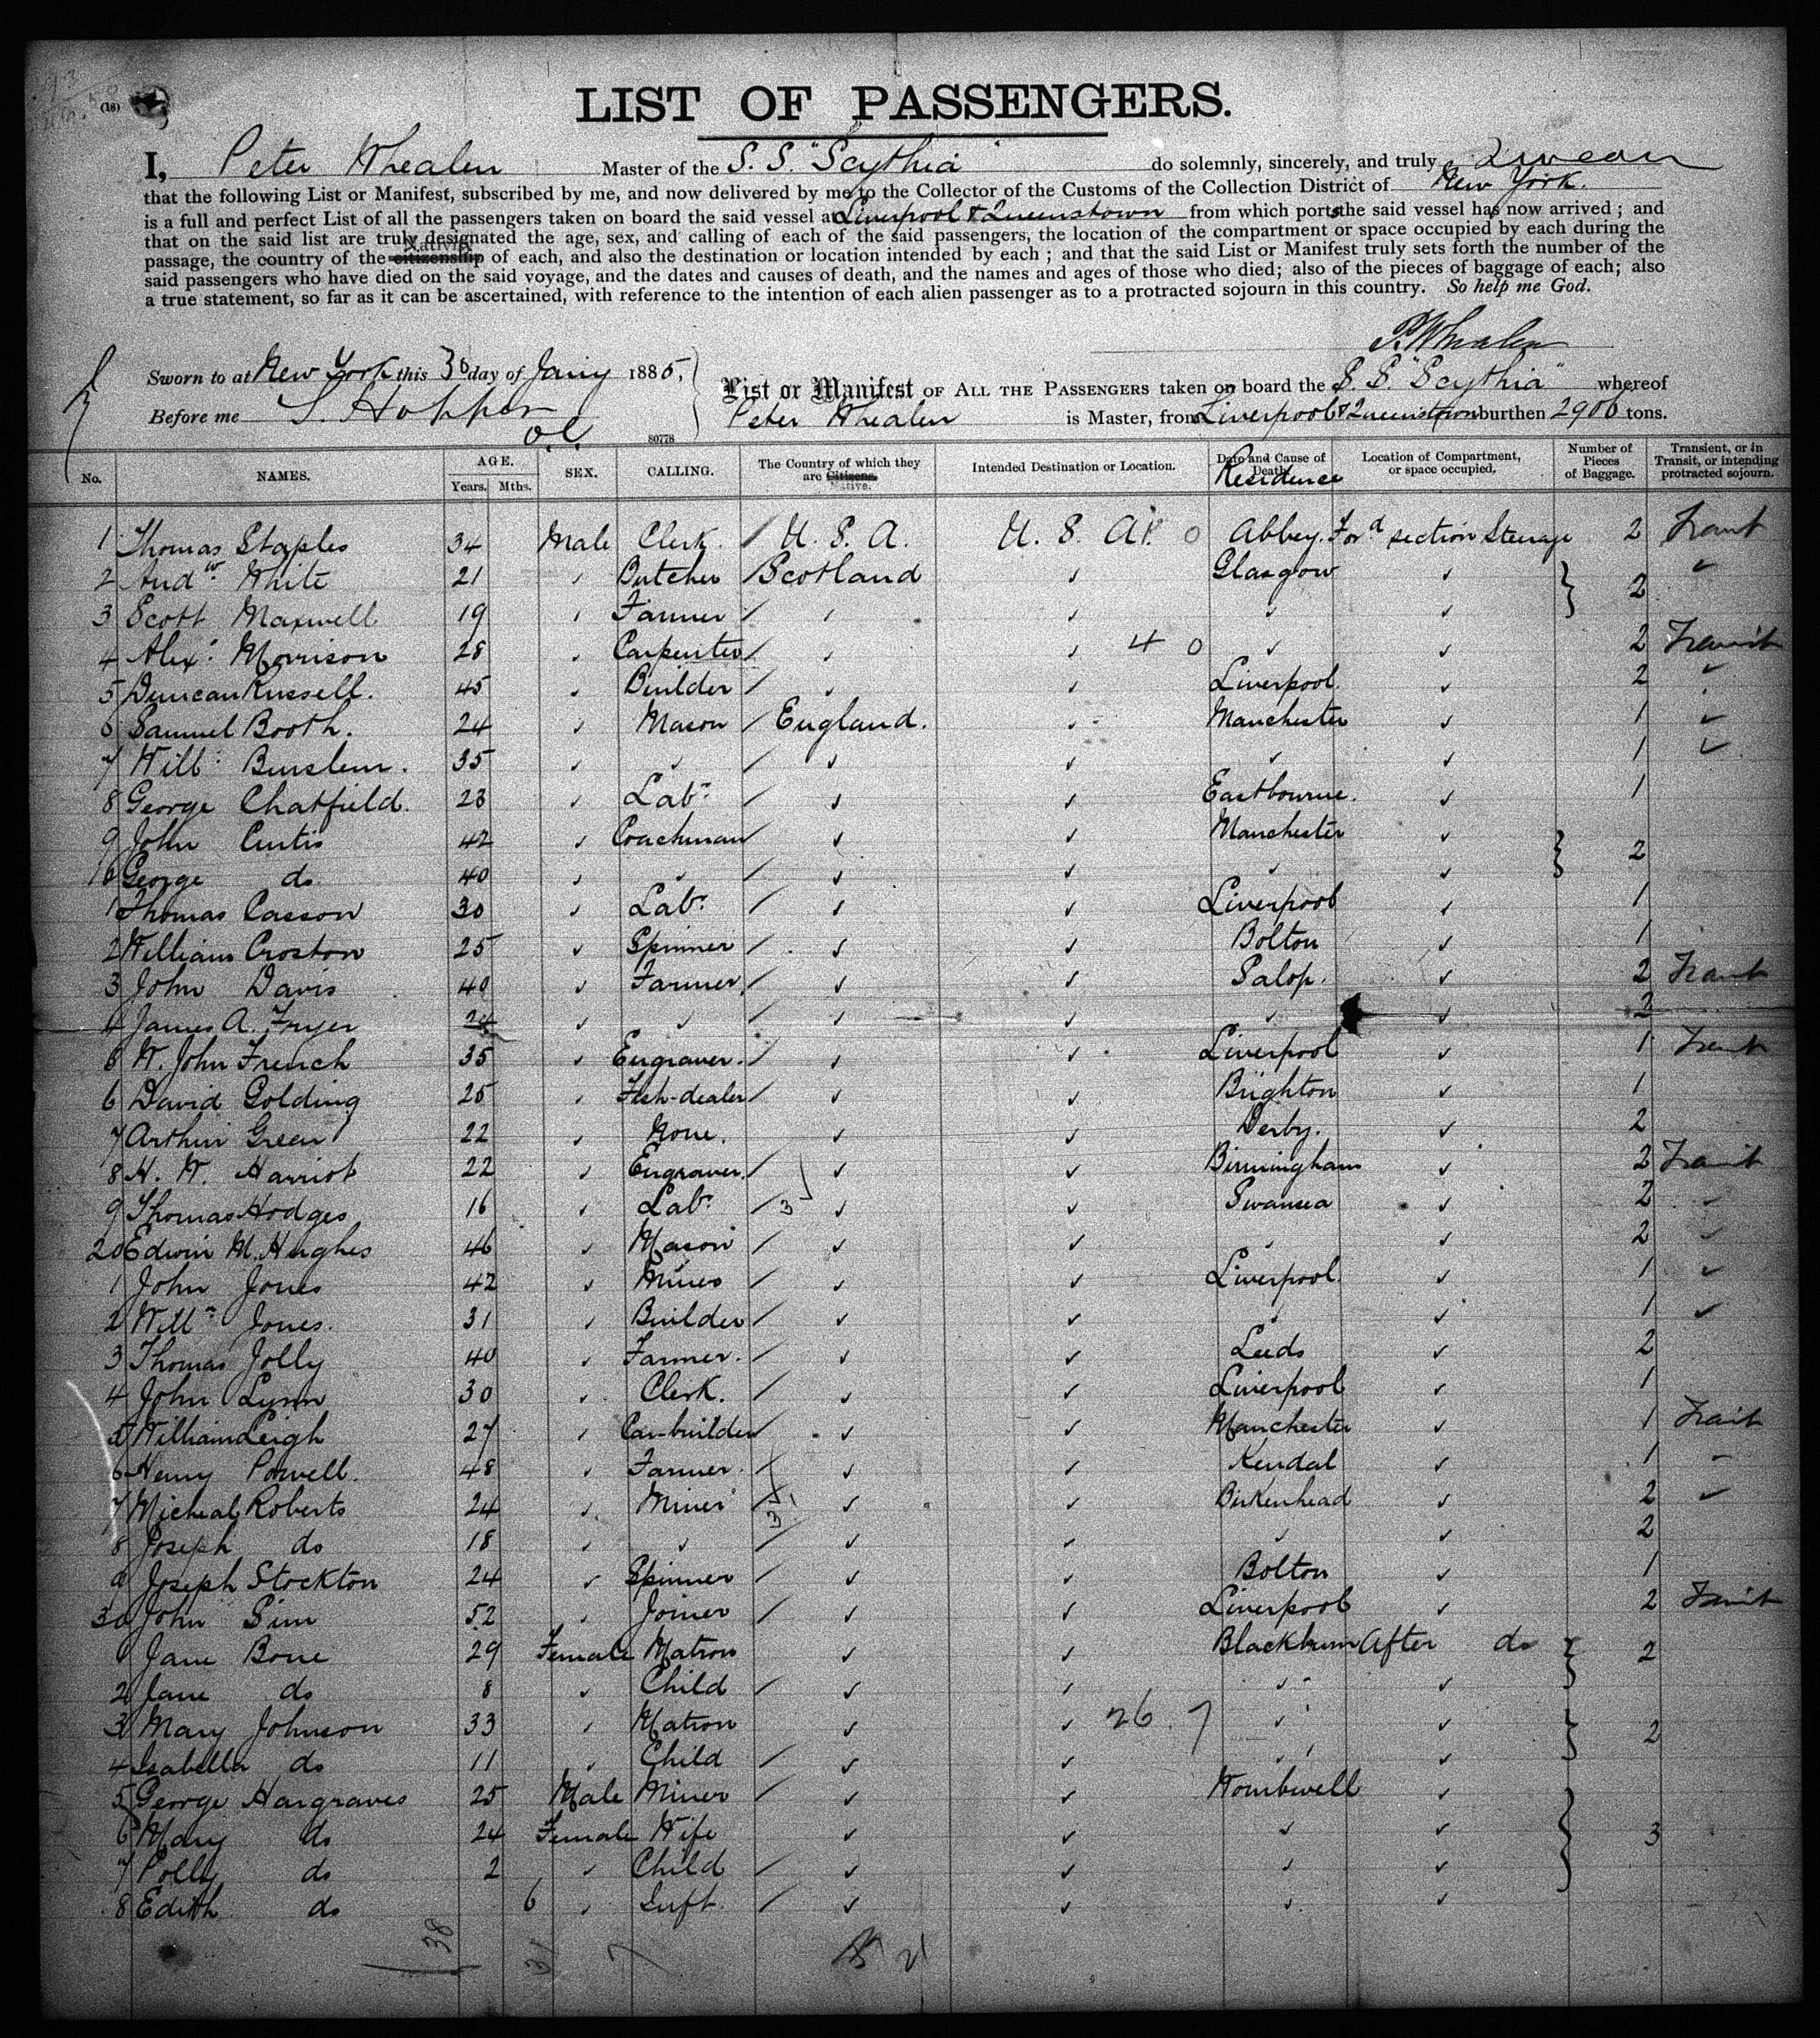 (18)
LIST OF PASSENGERS.
I, Peter Whealen Master of the S. S. "Scythia" do solemnly, sincerely, and truly Swear
that the following List or Manifest, subscribed by me, and now delivered by me to the Collector of the Customs of the Collection District of New York.
is a full and perfect List of all the passengers taken on board the said vessel at Liverpool & Queenstown from which ports the said vessel has now arrived; and
that on the said list are truly designated the age, sex, and calling of each of the said passengers, the location of the compartment or space occupied by each during the
passage, the country of the citizenship Nativity of each, and also the destination or location intended by each; and that the said List or Manifest truly sets forth the number of the
said passengers who have died on the said voyage, and the dates and causes of death, and the names and ages of those who died; also of the pieces of baggage of each; also
a true statement, so far as it can be ascertained, with reference to the intention of each alien passenger as to a protracted sojourn in this country. So help me God.
P. Whealen
Sworn to at New York this 30 day of Jany 1885,
Before me S. Hopper
80778
List or Manifest OF ALL THE PASSENGERS taken on board the S. S. "Scythia" whereof
Peter Whealen is Master, from Liverpool & Queenstown burthen 2906 tons.
No. NAMES. AGE. Years. Mths. SEX. CALLING. The Country of which they are Citizens. Native. Intended Destination or Location. Date and Cause of Death. Residence Location of Compartment, or space occupied. Number of Pieces of Baggage. Transient, or in Transit, or intending protracted sojourn.
1 Thomas Staples 34 Male Clerk / U. S. A. U. S. A. 1. 0 Abbey. For'd section Steerage 2 Transit
2 Andw. White 21 ✓ Butcher / Scotland ✓ Glasgow ✓ 2 ✓
3 Scott Maxwell 19 ✓ Farmer / ✓ ✓ ✓ ✓
4 Alexr. Morrison 28 ✓ Carpenter / ✓ ✓ 4 0 ✓ ✓ 2 Transit
5 Duncan Russell. 45 ✓ Builder / ✓ ✓ Liverpool. ✓ 2 ✓
6 Samuel Booth. 24 ✓ Mason / England. ✓ Manchester ✓ 1 ✓
7 Willm. Burslem. 35 ✓ ✓ / ✓ ✓ ✓ ✓ 1 ✓
8 George Chatfield. 23 ✓ Labr. / ✓ ✓ Eastbourne. ✓ 1
9 John Curtis 42 ✓ Coachman / ✓ ✓ Manchester ✓ 2
10 George do. 40 ✓ ✓ / ✓ ✓ ✓ ✓
1 Thomas Casson 30 ✓ Labr. / ✓ ✓ Liverpool ✓ 1
2 William Croston 25 ✓ Spinner / ✓ ✓ Bolton ✓ 1
3 John Davis 40 ✓ Farmer / ✓ ✓ Salop. ✓ 2 Transit
4 James A. Fryer 24 ✓ ✓ / ✓ ✓ ✓ ✓ 2
5 W. John French 35 ✓ Engraver. / ✓ ✓ Liverpool ✓ 1 Transit
6 David Golding 25 ✓ Fish-dealer / ✓ ✓ Brighton ✓ 1
7 Arthur Green 22 ✓ None. ✓ ✓ Derby. ✓ 2
8 H. W. Harriot 22 ✓ Engraver / ✓ ✓ Birmingham ✓ 2 Transit
9 Thomas Hodges 16 ✓ Labr. / 3 ✓ ✓ Swansea ✓ 2 ✓
20 Edwin M. Hughes 46 ✓ Mason / ✓ ✓ ✓ ✓ 2 ✓
1 John Jones 42 ✓ Miner / ✓ ✓ Liverpool. ✓ 1 ✓
2 Willm Jones. 31 ✓ Builder / ✓ ✓ ✓ ✓ 1 ✓
3 Thomas Jolly 40 ✓ Farmer. / ✓ ✓ Leeds ✓ 2
4 John Lynn 30 ✓ Clerk. / ✓ ✓ Liverpool ✓ 1
5 William Leigh 27 ✓ Car-builder / ✓ ✓ Manchester ✓ 1 Transit
6 Henry Powell. 48 ✓ Farmer. / ✓ ✓ Kendal ✓ 1 ✓
7 Micheal Roberts 24 ✓ Miner / ✓ ✓ Birkenhead ✓ 2 ✓
8 Joseph do 18 ✓ ✓ / ✓ ✓ ✓ ✓ 2
9 Joseph Stockton 24 ✓ Spinner / ✓ ✓ Bolton ✓ 1
30 John Sim 52 ✓ Joiner / ✓ ✓ Liverpool ✓ 2 Transit
1 Jane Bone 29 Female Matron ✓ ✓ Blackburn After do 2
2 Jane do 8 ✓ Child / ✓ ✓ ✓ ✓
3 Mary Johnson 33 ✓ Matron ✓ ✓ 26. 7 ✓ ✓ 2
4 Isabella do 11 ✓ Child / ✓ ✓ ✓ ✓
5 George Hargraves 25 Male Miner / ✓ ✓ Wombwell ✓ 3
6 Mary do 24 Female Wife ✓ ✓ ✓ ✓
7 Polly do 2 ✓ Child / ✓ ✓ ✓ ✓
8 Edith do 6 ✓ Inft. / ✓ ✓ ✓ ✓
38 31 7 21